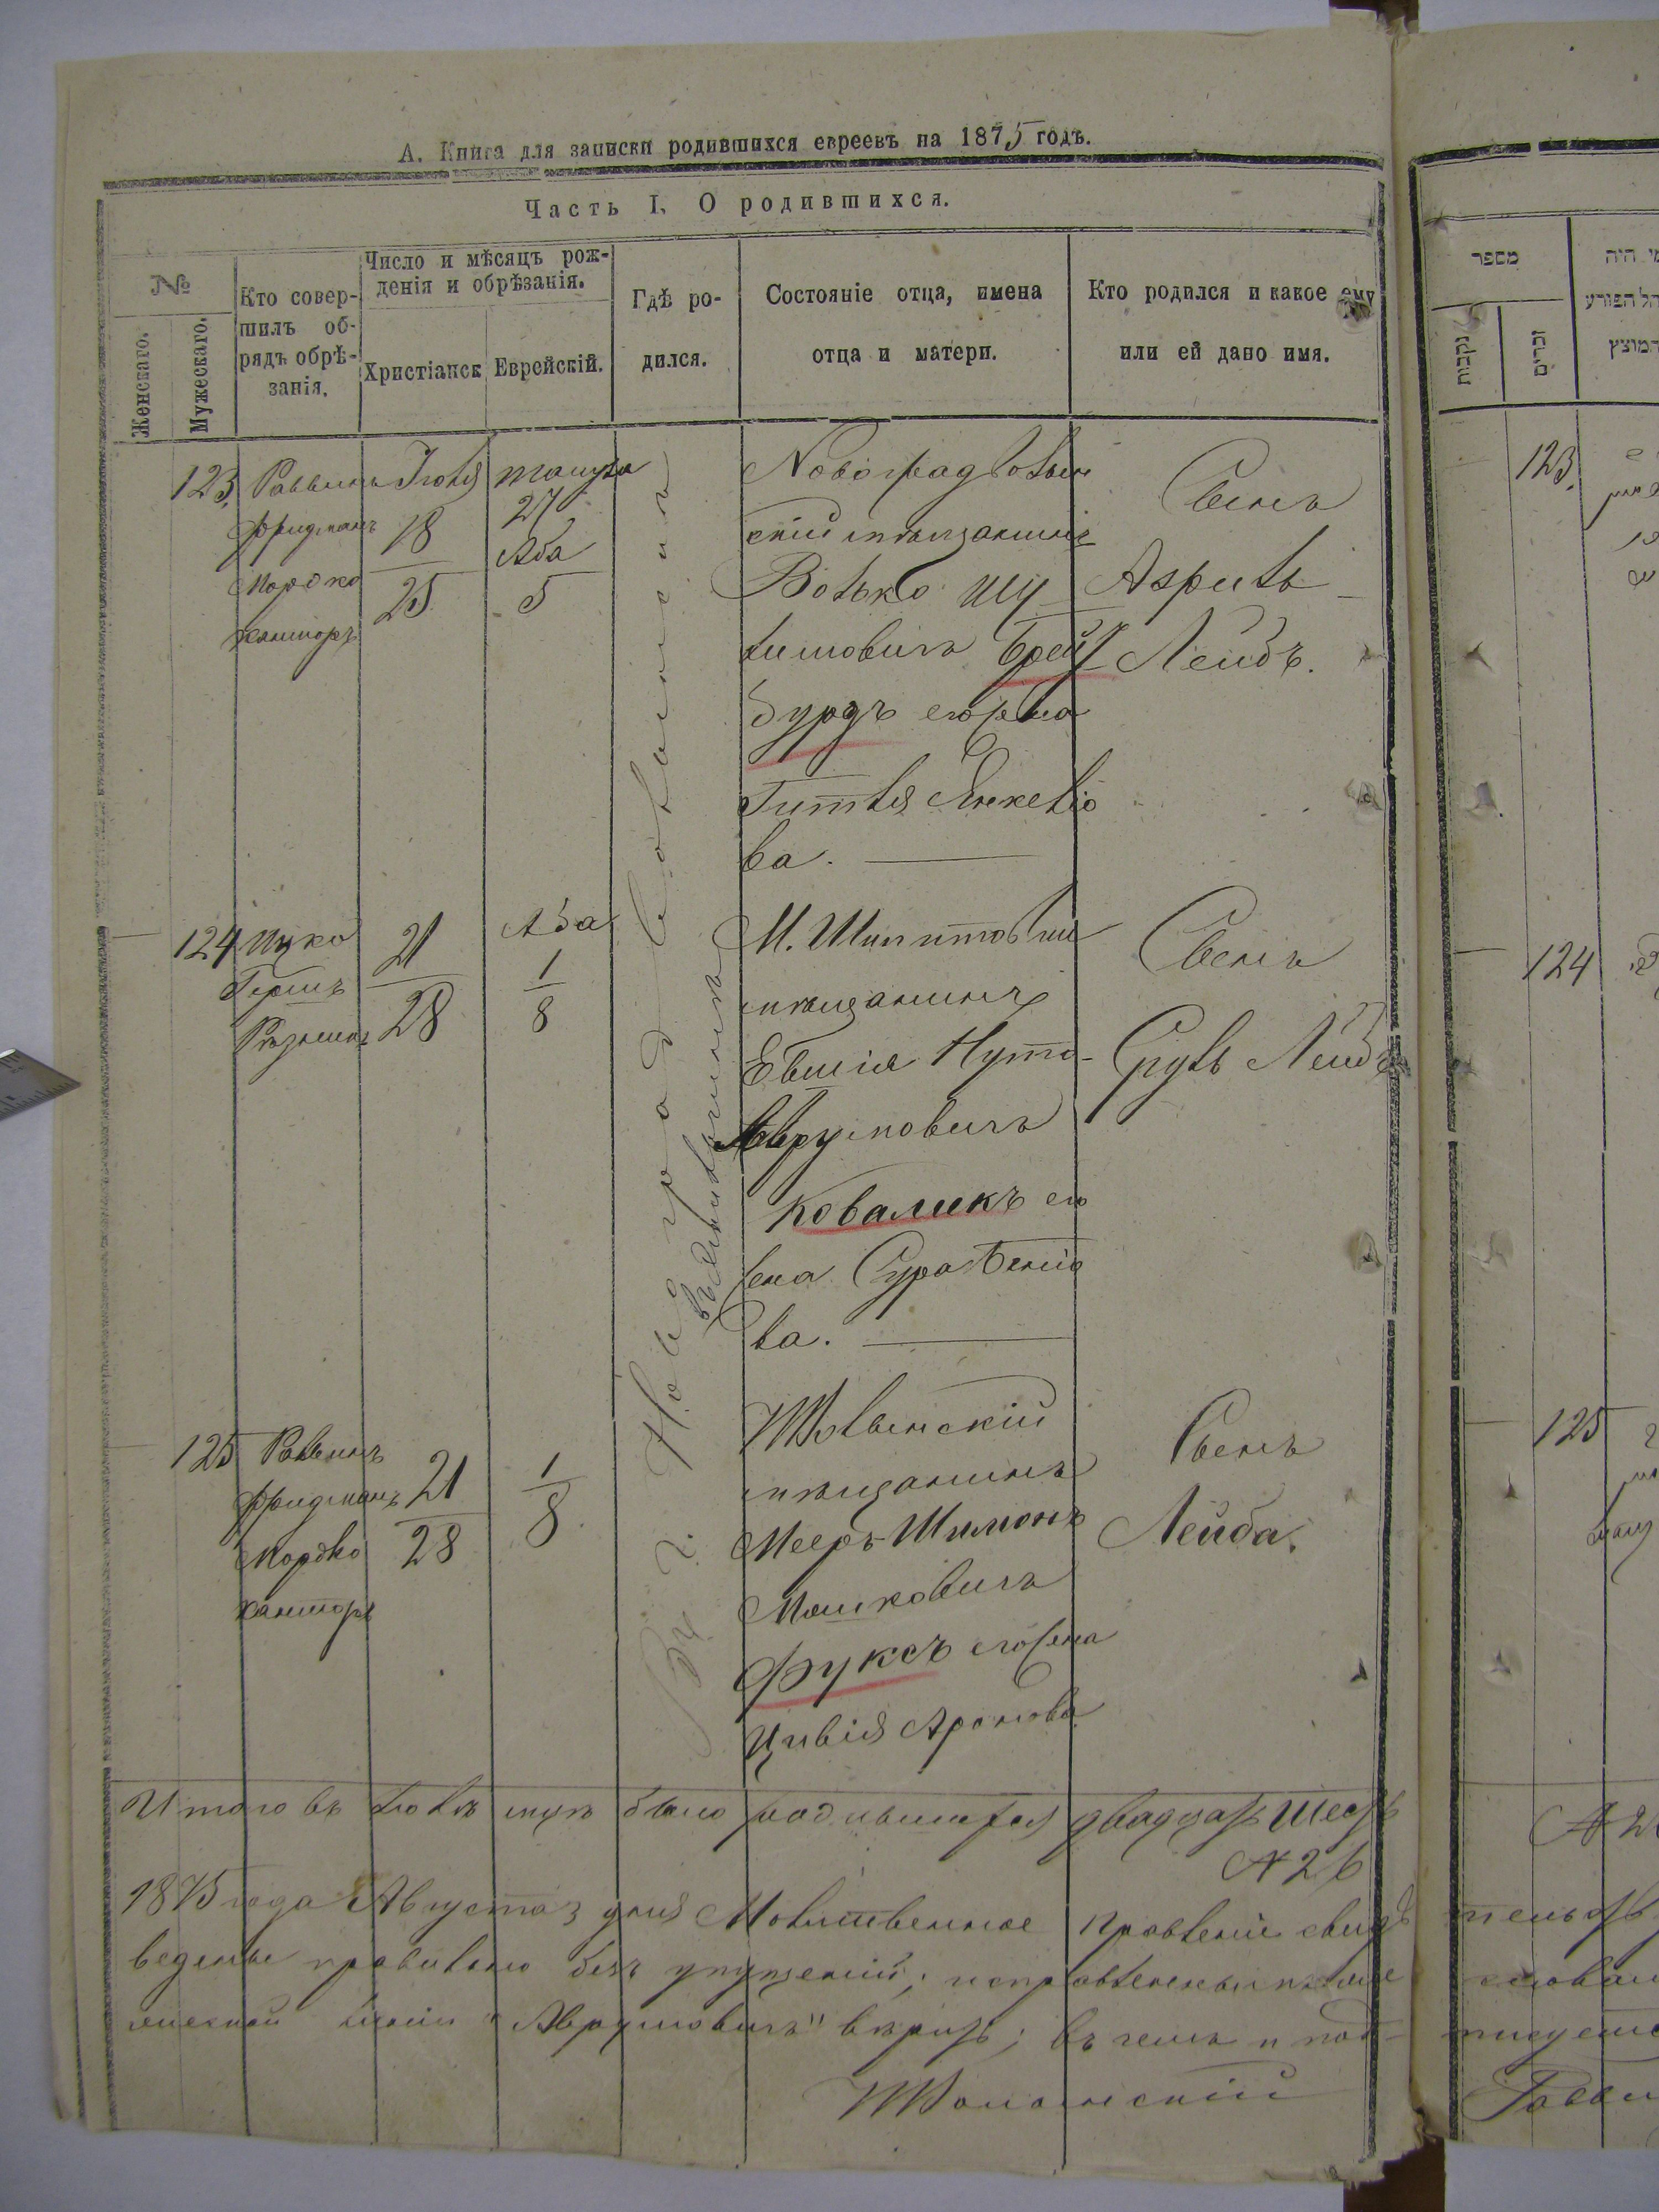 А. Книга для записки родившихся евреевъ на 1875 годъ.
Часть I. О родившихся.
№
Женскаго.
Мужескаго.
Кто совер-
шилъ об-
рядъ обрѣ-
занія.
Число и мѣсяцъ рож-
денія и обрѣзанія.
Христіанск
Еврейскій.
Гдѣ ро-
дился.
Состояніе отца, имена
отца и матери.
Кто родился и какое ему
или ей дано имя.
123
Раввинъ
Фридманъ
Мордко
Канторъ
Іюля
18
25
Тамуза
27
Аба
5
Въ г. Новоградволынскѣ
Новоградволын
скій мѣщанинъ
Волько Шу
лимовичъ Брей
бурдъ его жена
Гитля Янкеліо
ва.
Сынъ
Азриль
Лейбъ.
124
Ицко
Гершъ
21
28
Аба
1
8
М.
мѣщанинъ
Евшія Нута
Аврумовичъ
Коваликъ его
жена Сура
ва.
Сынъ
Сруль Лейбъ
125
Раввинъ
Фридманъ
Мордко
Канторъ
21
28
1
8
мѣщанинъ
Мееръ Шимонъ
Мошковичъ
Фуксъ его жена
Цивія Аронова
Сынъ
Лейба.
Итого въ Іюлѣ муж было родившихся двадцать шесть
№ 26
1875 года Августа 3 дня Молитвенное Правленіе свидѣ
ведены правильно безъ упущеній; исправленнымъ
"Аврумовичъ" вѣрить; въ чемъ и под-
מספר
נקבות
זכרים
מי היה
המוצץ
123
124
125